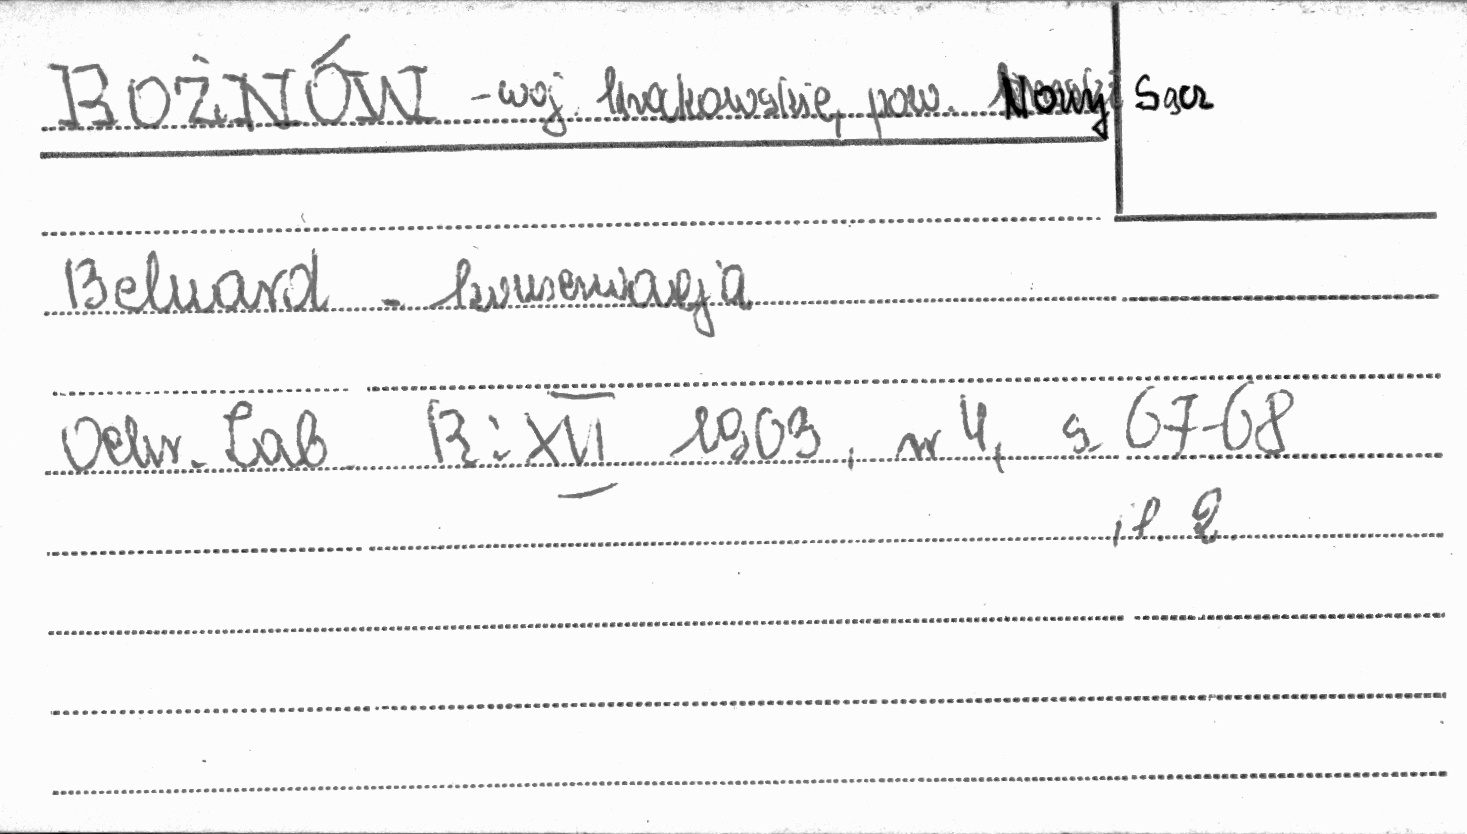 ROŻNÓW - woj. krakowskie, pow. Nowy Sącz
Beluard - konserwacja
Ochr. Zab. R: XVI 1963, nr 4, s. 67-68
, il. 2.